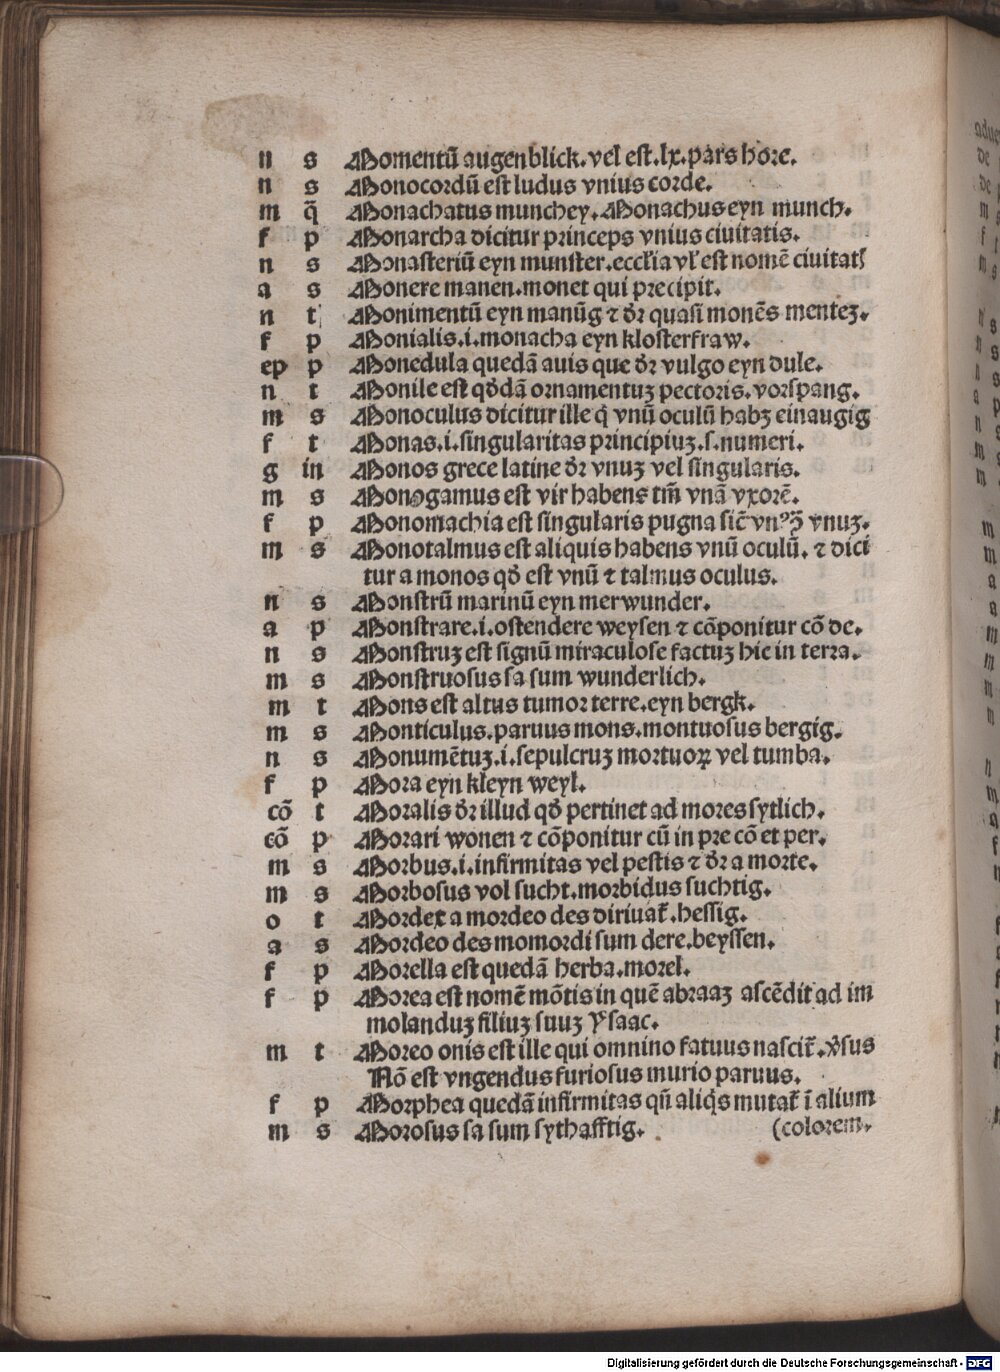 n s Momentū augenblick. vel est .lx. pars hore.
n s Monocordū est ludus vnius corde.
m q̄ Monachatus munchey. Monachus eyn munch.
f p Monarcha dicitur princeps vnius ciuitatis.
n s Monasteriū eyn munster. eccl'ia vl' est nomē ciuitatꝭ
a s Monere manen. monet qui precipit.
n t Monimentū eyn manūg ⁊ dr̄ quasi monēs mentez.
f p Monialis .i. monacha eyn klosterfraw.
ep p Monedula quedā auis que dr̄ vulgo eyn dule.
n t Monile est qd̄dā ornamentuz pectoris. vorspang.
m s Monoculus dicitur ille q̇ vnū oculū habz einaugig
f t Monas .i. singularitas principiuz .s. numeri.
g in Monos grece latine dr̄ vnuz vel singularis.
m s Monogamus est vir habens tm̄ vnā vxorē.
f p Monomachia est singularis pugna sic̄ vnꝰ ꝯ̄ vnuz.
m s Monotalmus est aliquis habens vnū oculū. ⁊ dici
tur a monos qd̄ est vnū ⁊ talmus oculus.
n s Monstrū marinū eyn merwunder.
a p Monstrare .i. ostendere weysen ⁊ cōponitur cō de.
n s Monstruz est signū miraculose factuz hic in terra.
m s Monstruosus sa sum wunderlich.
m t Mons est altus tumor terre. eyn bergk.
m s Monticulus. paruus mons. montuosus bergig.
n s Monumētuz .i. sepulcruz mortuoꝝ vel tumba.
f p Mora eyn kleyn weyl.
cō t Moralis dr̄ illud qd̄ pertinet ad mores sytlich.
cō p Morari wonen ⁊ cōponitur cū in pre cō et per.
m s Morbus .i. infirmitas vel pestis ⁊ dr̄ a morte.
m s Morbosus vol sucht. morbidus suchtig.
o t Mordex a mordeo des diriuat̄. hessig.
a s Mordeo des momordi sum dere. beyssen.
f p Morella est quedā herba. morel.
f p Morea est nomē mōtis in quē abraaz ascēdit ad im
molanduz filiuz suuz Ysaac.
m t Moreo onis est ille qui omnino fatuus nascit̄. v̄sus
Nō est vngendus furiosus murio paruus.
f p Morphea quedā infirmitas qn̄ aliq̇s mutat̄ ī alium
m s Morosus sa sum sythafftig. (colorem.
Digitalisierung gefördert durch die Deutsche Forschungsgemeinschaft - DFG